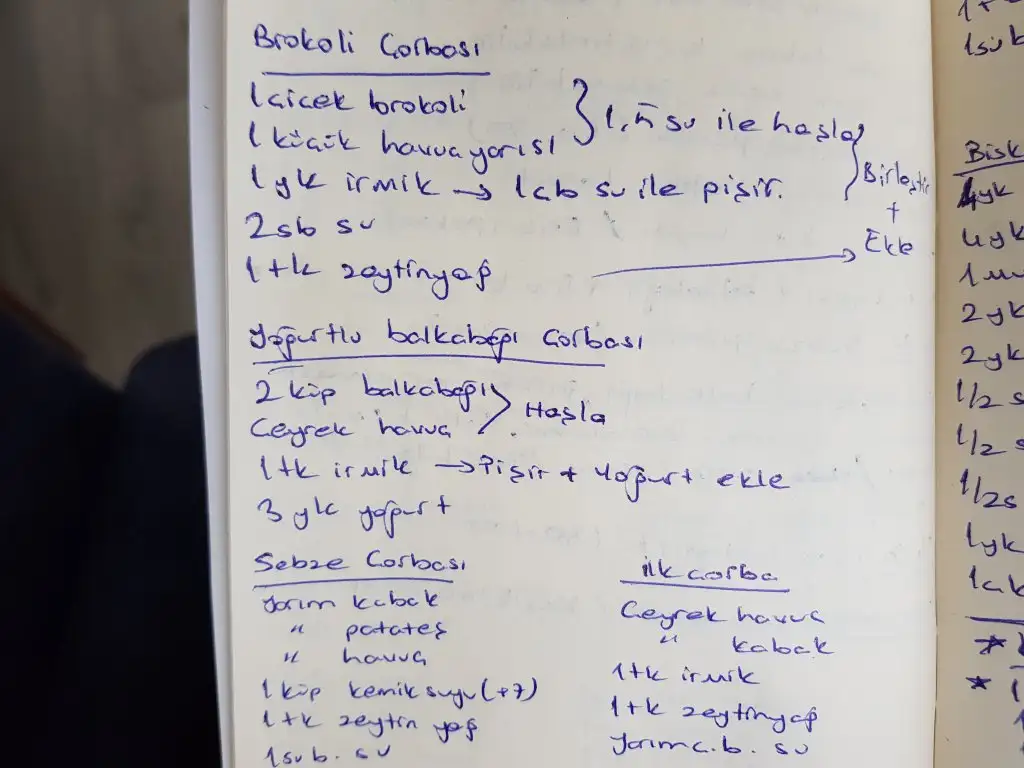 Brokoli Çorbası
1 çiçek brokoli
1 küçük havuç yarısı
1,5 su ile haşla
1 yk irmik → 1 çb su ile pişir.
Birleştir
+
Ekle
2 sb su
1 tk zeytinyağ
Yoğurtlu balkabağı Çorbası
2 küp balkabağı
Çeyrek havuç
Haşla
1 tk irmik → Pişir + Yoğurt ekle
3 yk yoğurt
Sebze Çorbası
Yarım kabak
" patates
" havuç
1 küp kemik suyu (+7)
1 tk zeytin yağ
1 su b. su
ilk çorba
Çeyrek havuç
" kabak
1 tk irmik
1 tk zeytinyağ
Yarım ç.b. su
1 su b
Bisk
4 yk
4 yk
1
2 yk
2 yk
1/2 s
1/2 s
1/2 s
1 yk
1 çb
*
* 1